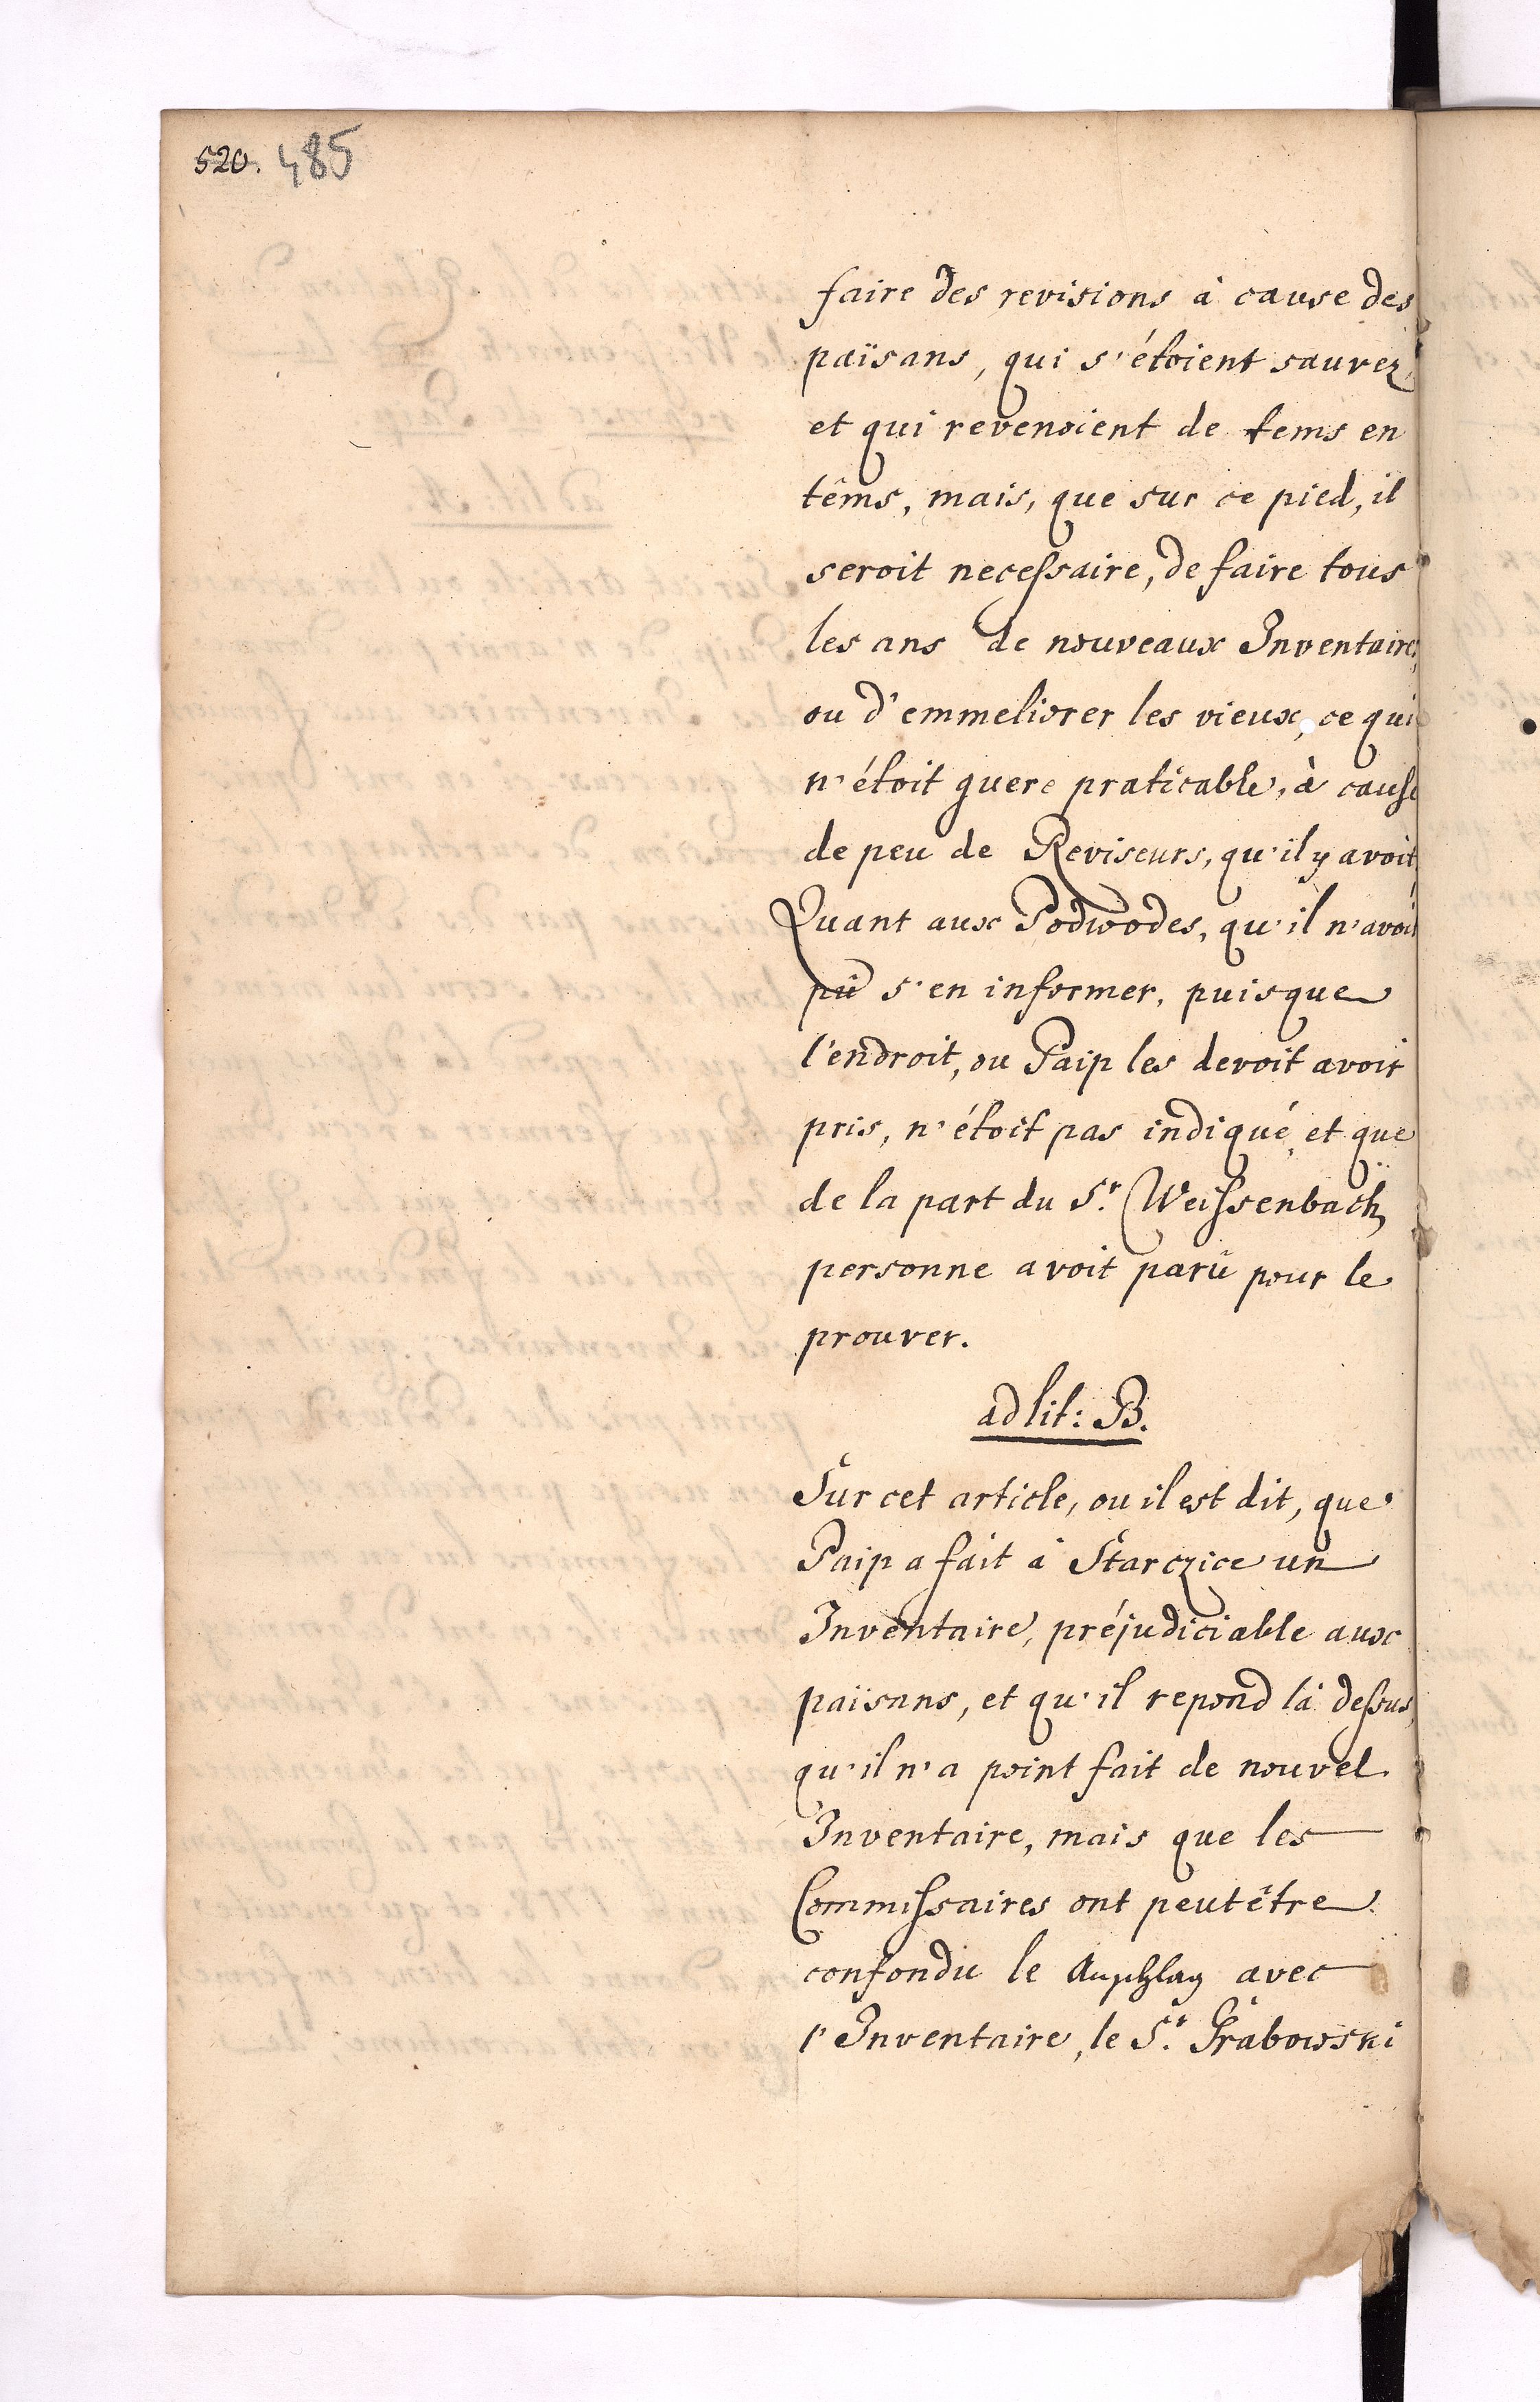 520. 485
faire des revisions à cause des
païsans, qui s'étoient sauvez,
et qui revenoient de tems en
têms, mais, que sur ce pied, il
seroit necessaire, de faire tous
les ans de nouveaux Inventaires,
ou d'emmeliorer les vieux, ce qui
n'étoit guere praticable, à cause
de peu de Reviseurs, qu'il y avoit,
Quant aux Podwodes, qu'il n'avoit
pû s'en informer, puisque
l'endroit, ou Paip les devoit avoir
pris, n'étoit pas indiqué, et que
de la part du Sr. Weissenbach,
personne avoit parû pour le
prouver.
ad lit: B.
Sur cet article, ou il est dit, que
Paip a fait à Starczice un
Inventaire, préjudiciable aux
païsans, et qu'il repond là dessus,
qu'il n'a point fait de nouvel
Inventaire, mais que les
Commissaires ont peutêtre
confondu le Anschlag avec
l'Inventaire, le Sr. Grabowski